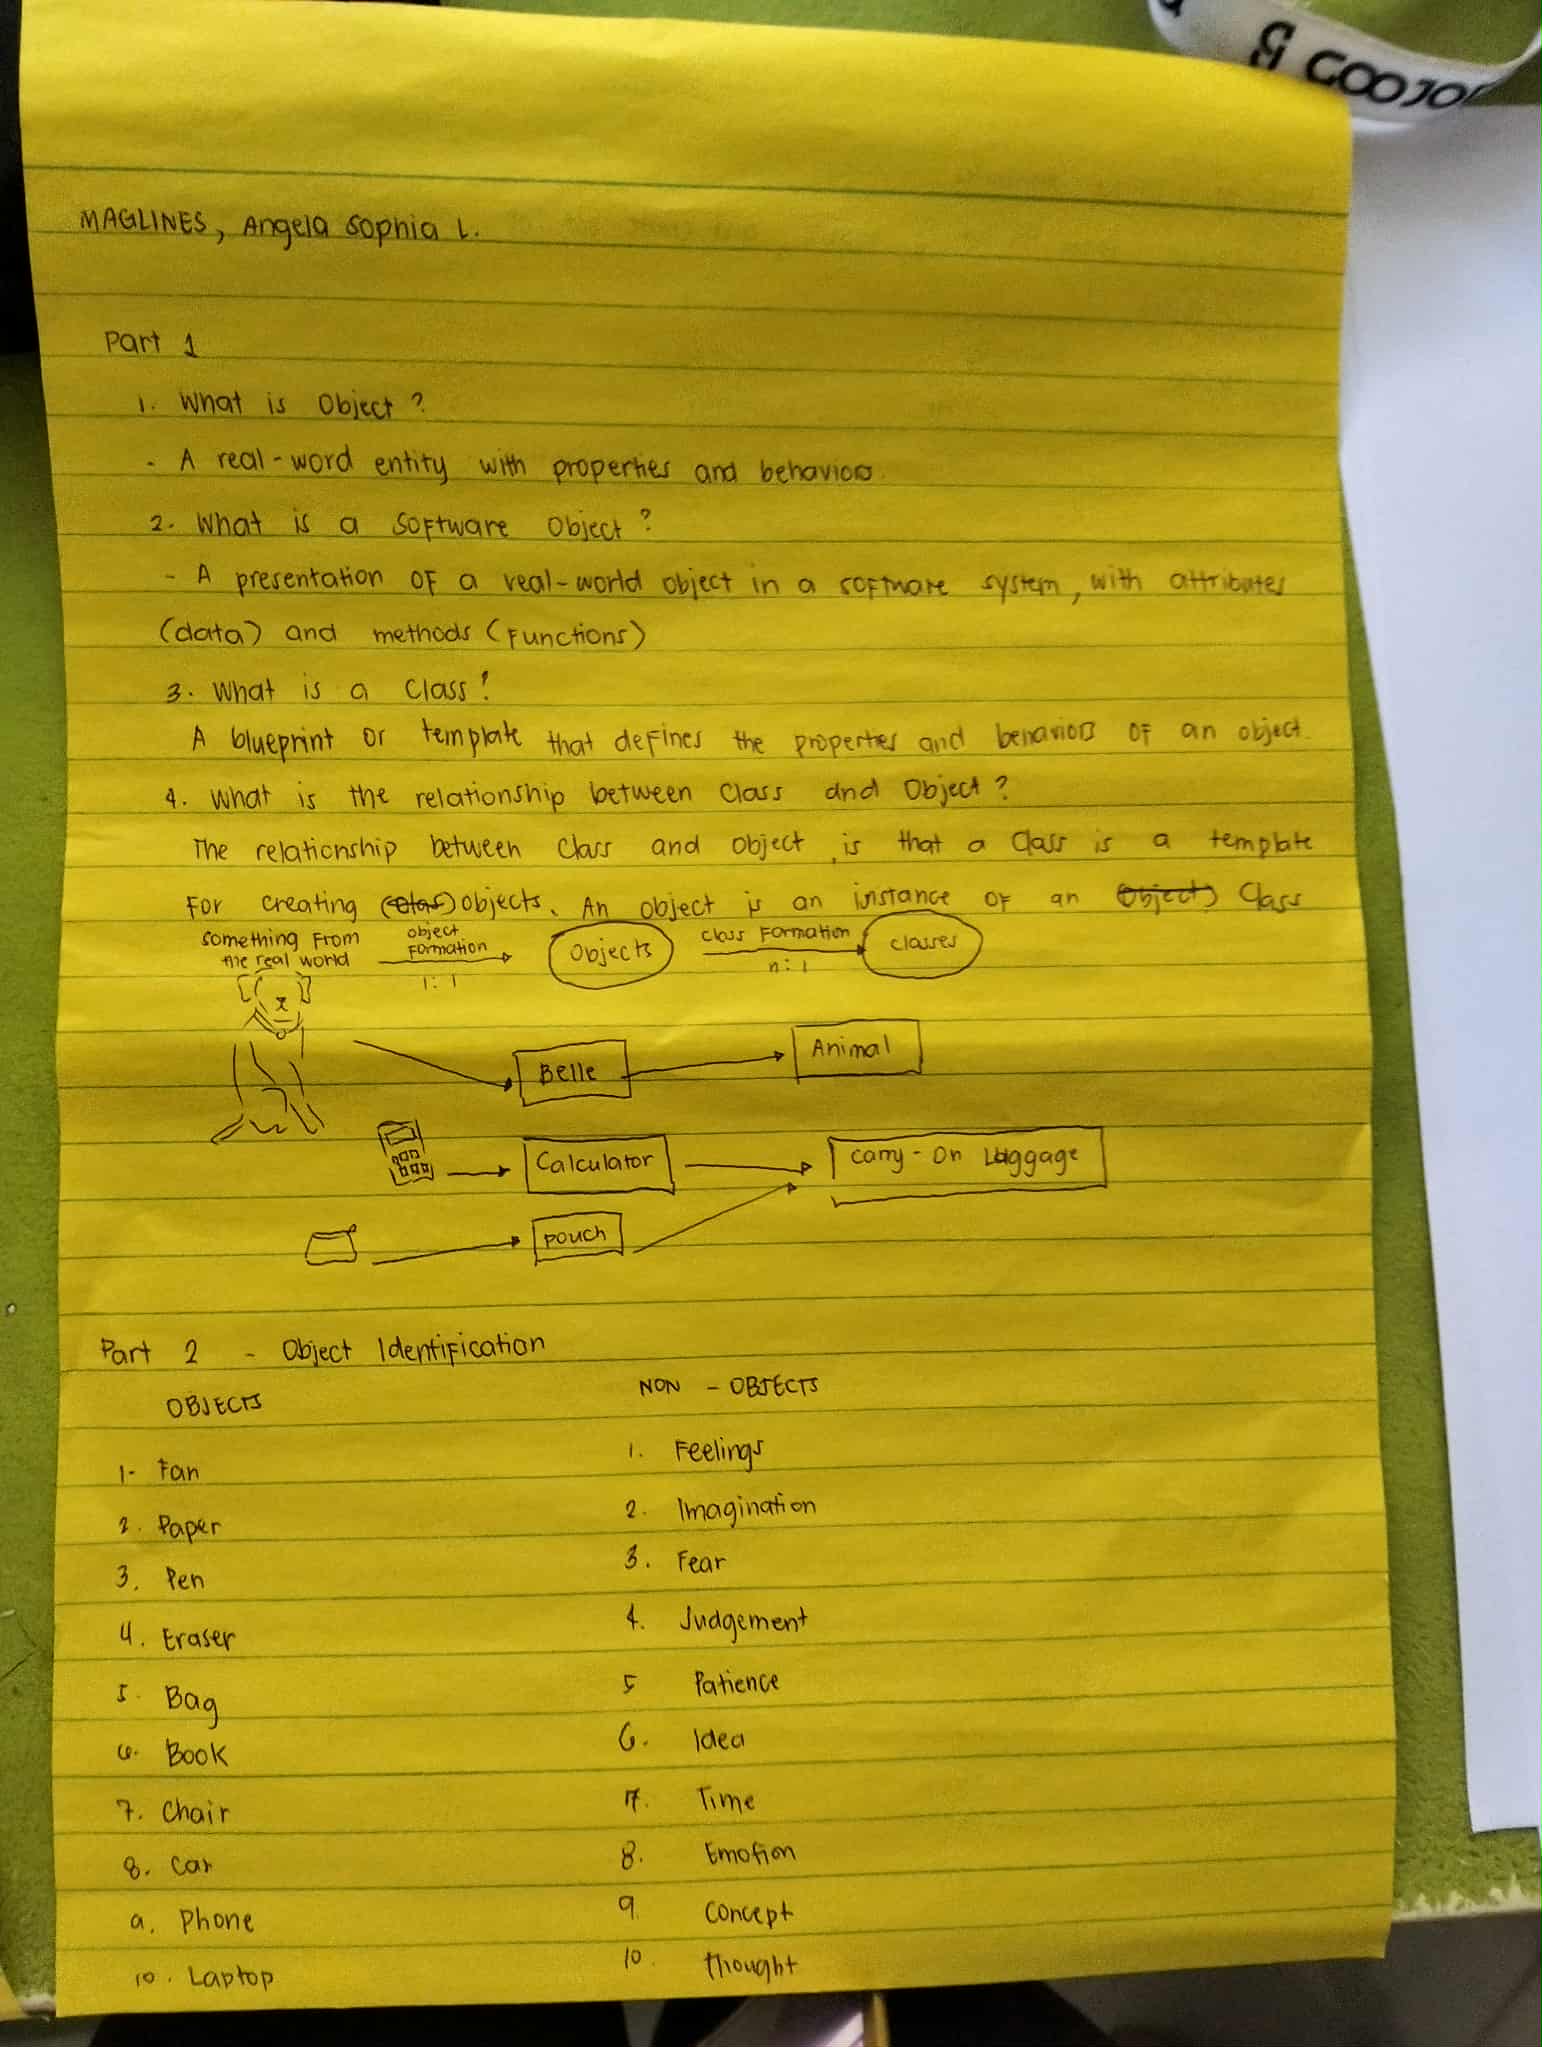 GOOJO
MAGLINES, Angela Sophia L.
Part 1
1. What is Object?
- A real-word entity with properties and behaviors.
2. What is a Software Object?
- A presentation of a real-world object in a software system, with attributes
(data) and methods (functions)
3. What is a Class?
A blueprint or template that defines the properties and behaviors of an object.
4. What is the relationship between Class and Object?
The relationship between Class and Object is that a Class is a template
For creating (class) objects. An object is an instance of an (Object) Class
something from the real world
object formation
1:1
Objects
class Formation
n:1
classes
Belle
Animal
Calculator
Carry-On Luggage
pouch
Part 2 - Object Identification
OBJECTS
NON - OBJECTS
1. Fan
1. Feelings
2. Paper
2. Imagination
3. Pen
3. Fear
4. Eraser
4. Judgement
5. Bag
5 Patience
6. Book
6. Idea
7. Chair
7. Time
8. Car
8. Emotion
9. Phone
9. Concept
10. Laptop
10. thought